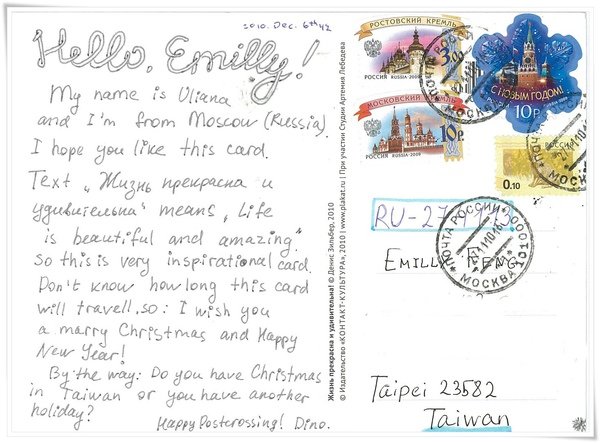 2010. Dec. 6th 42
Hello, Emilly!
My name is Uliana
and I'm from Moscow (Russia)
I hope you like this card.
Text „Жизнь прекрасна и
удивительна" means „Life
is beautiful and amazing."
So this is very inspirational card.
Don't know how long this card
will travell, so: I wish you
a marry Christmas and Happy
New Year!
By the way: Do you have Christmas
in Taiwan or you have another
holiday?
Happy Postcrossing! Dino.
Жизнь прекрасна и удивительна! © Денис Зильбер, 2010
© Издательство «КОНТАКТ-КУЛЬТУРА», 2010 | www.plakat.ru | При участии Студии Артемия Лебедева
РОСТОВСКИЙ КРЕМЛЬ
РОССИЯ RUSSIA·2009
МОСКОВСКИЙ КРЕМЛЬ
10р
РОССИЯ RUSSIA·2009
С НОВЫМ ГОДОМ!
10р
РОССИЯ
0.10
ПОЧТА РОССИИ
МОСКВА
EMILLY FENG
Taipei 23582
Taiwan